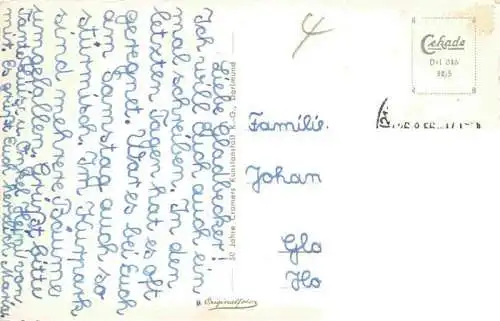 Liebe Gladbecker!
Ich will Euch auch ein
mal schreiben. In den
letzten Tagen hat es oft
geregnet. War es bei Euch
am Samstag auch so
stürmisch. Im Kurpark
sind mehrere Bäume
umgefallen. Grüßt bitte
Tante u. Onkel von
mir. Es grüßt Euch herzlich Maria
50 Jahre Cramers Kunstanstalt K.-G., Dortmund
Originalfoto
4
Cekade
Dtl 016
32/5
Familie
Johan
Gla
Ho